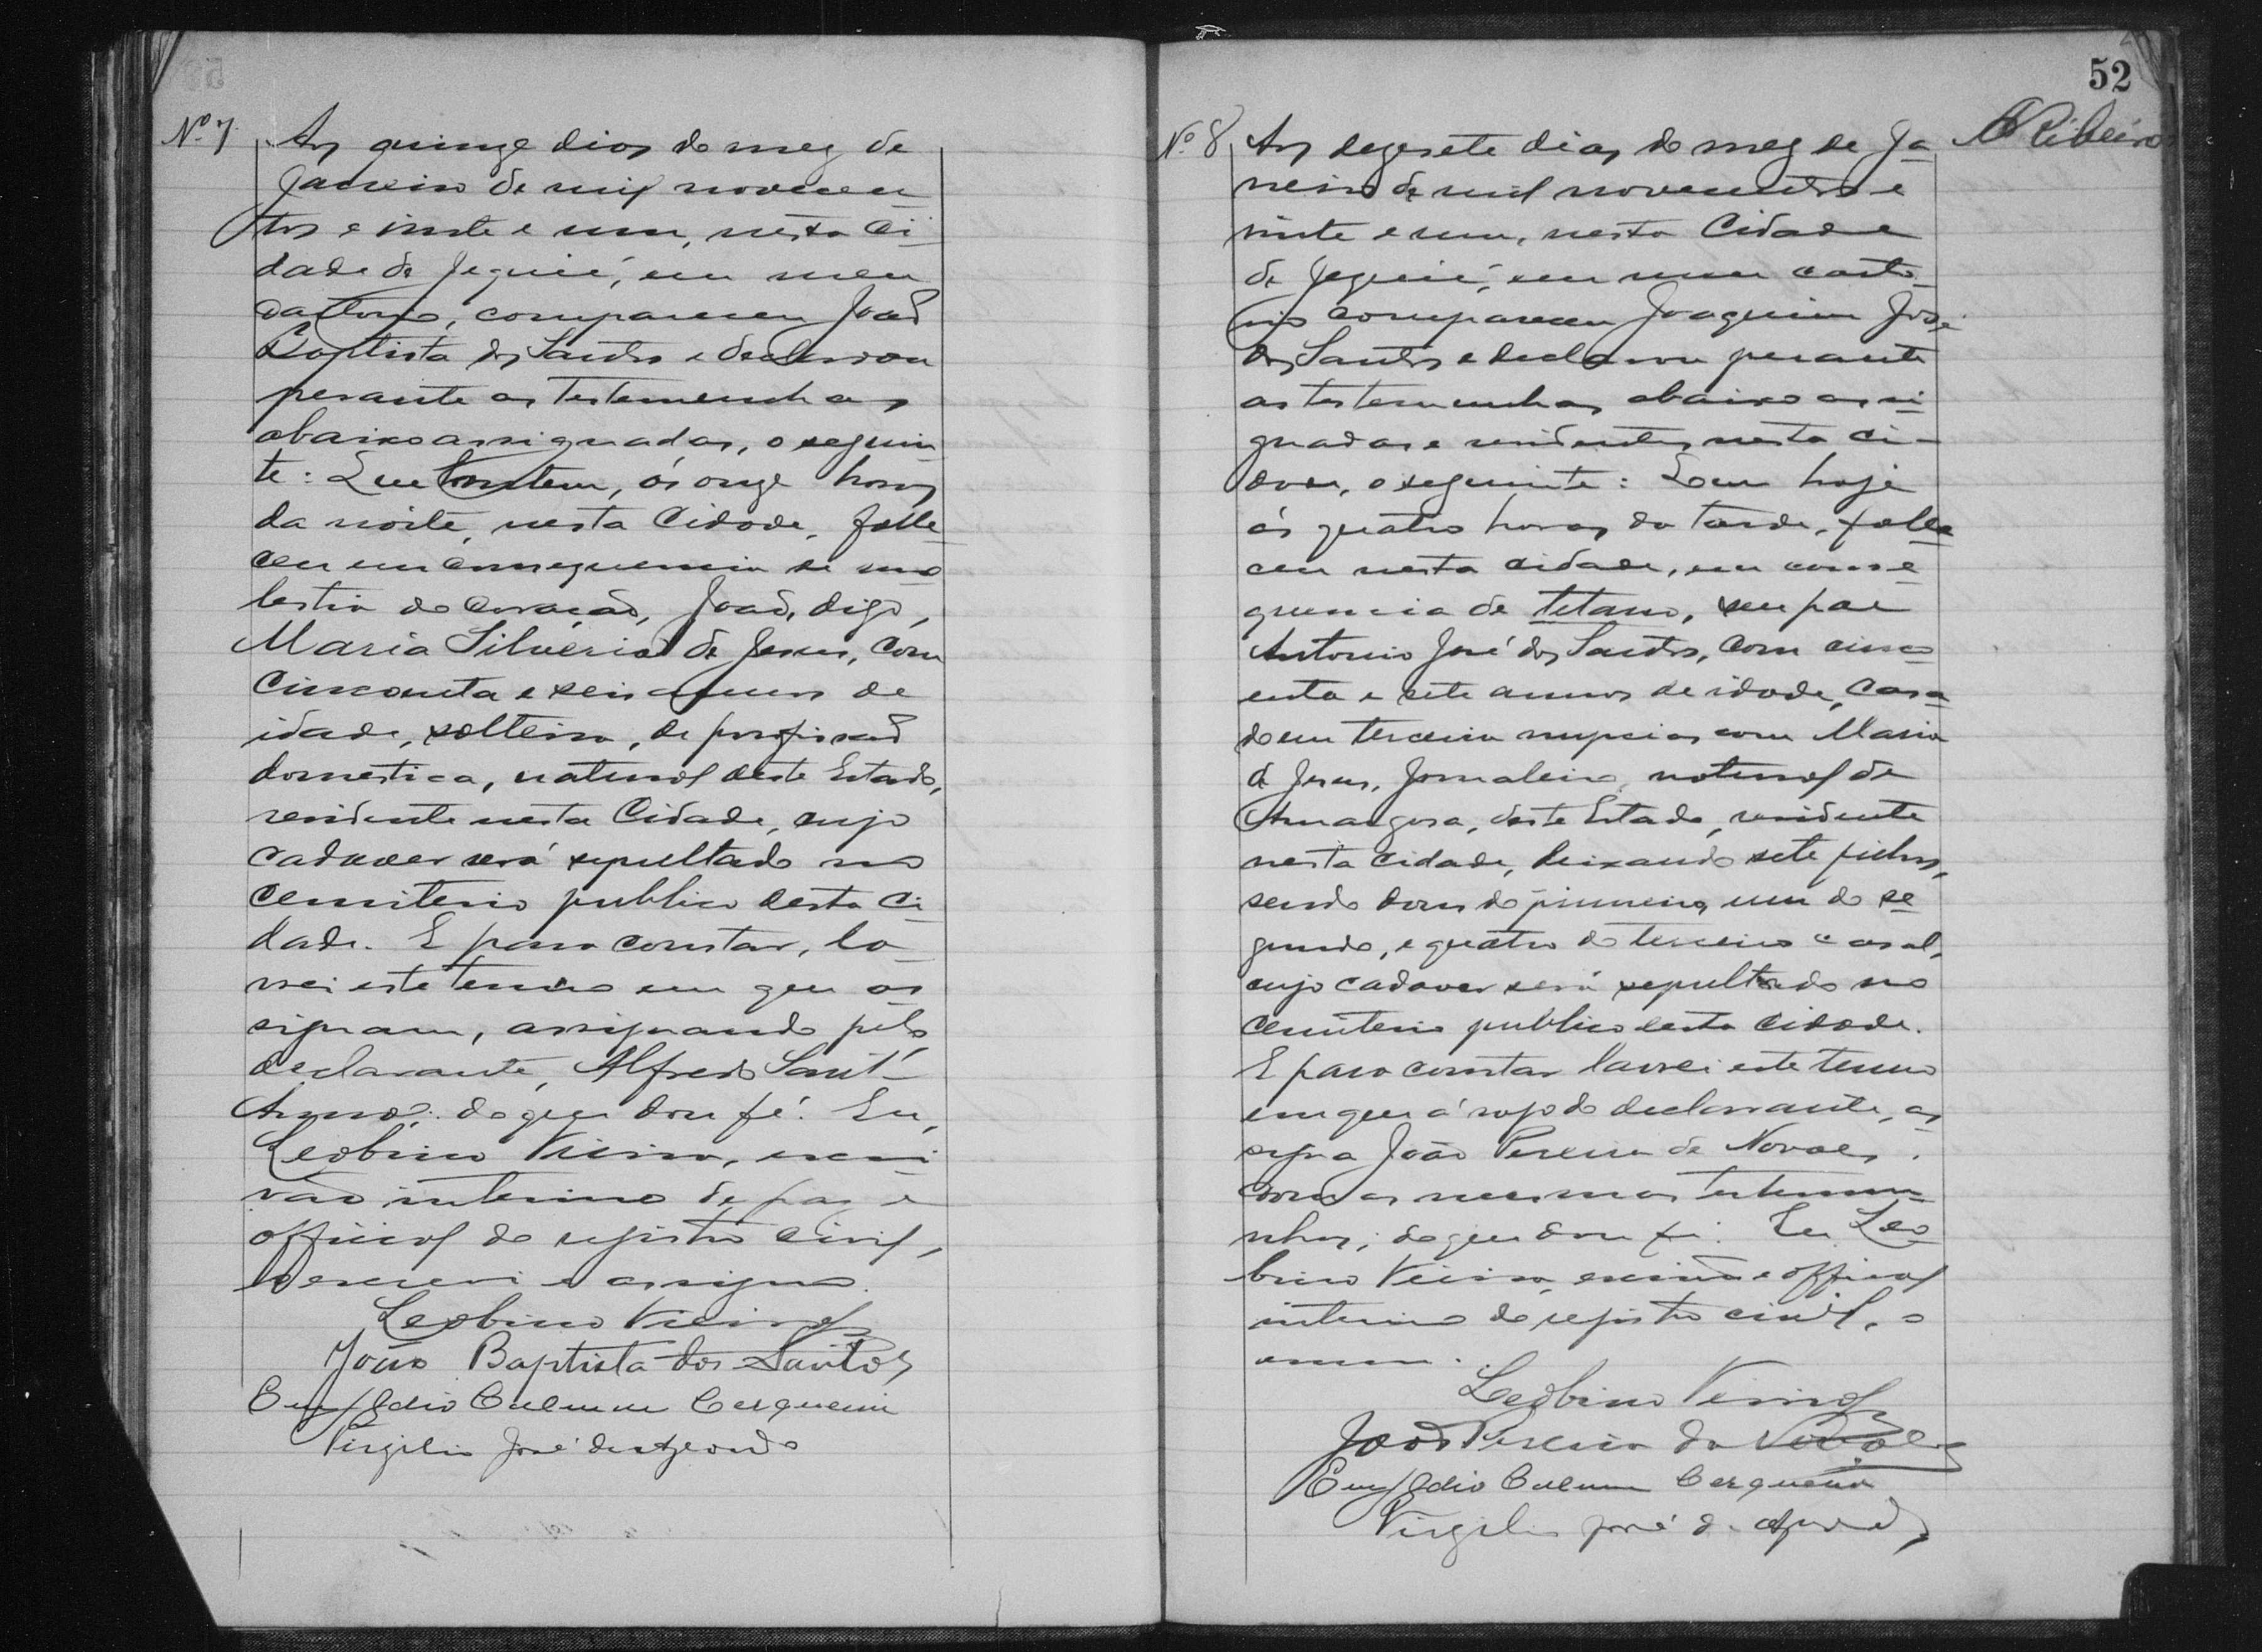 Nº 7
Aos quinze dias do mez de
Janeiro de mil novecen-
tos e vinte e um, nesta Ci-
dade de Jequié, em meu
cartorio, compareceu João
Baptista dos Santos e declarou
perante as testemunhas
abaixo assignadas, o seguin-
te: Que hontem, ás onze horas
da noite, nesta Cidade, falle-
ceu em consequencia de mo-
lestia do coração, João, digo,
Maria Silveria de Jesus, com
cincoenta e seis annos de
idade, solteira, de profissão
domestica, natural deste Estado,
residente nesta Cidade, cujo
cadaver será sepultado no
cemiterio publico desta Ci-
dade. E para constar, la-
vrei este termo em que as-
signam, assignando pelo
declarante, Alfredo Sant'
Anna; do que dou fé. Eu,
Leobino Vieira, escri-
vão interino de paz e
official do registro civil,
o escrevi e assigno.
Leobino Vieira
João Baptista dos Santos
Cerqueira
Virgilio José de Azevedo
52
Nº 8
Ribeiro
Aos dezesete dias do mez de Ja-
neiro de mil novecentos e
vinte e um, nesta Cidade
de Jequié, em meu carto-
rio compareceu Joaquim José
dos Santos e declarou perante
as testemunhas abaixo assi-
gnadas e residentes nesta ci-
dade, o seguinte: Que hoje
ás quatro horas da tarde, falle-
ceu nesta cidade, em conse-
quencia de tetano, seu pae
Antonio José dos Santos, com cinco-
enta e sete annos de idade, casa-
do em terceira nupcias com Maria
de Jesus, jornaleiro, natural de
Amargosa, deste Estado, residente
nesta cidade, deixando sete filhos,
sendo dous do primeiro, um do se-
gundo, e quatro do terceiro casal,
cujo cadaver será sepultado no
cemiterio publico desta cidade.
E para constar lavrei este termo
em que á rogo do declarante, as-
signa João Pereira de Novaes.
com as mesmas testemu-
nhas; do que dou fé. Eu Leo-
bino Vieira, escrivão e official
interino do registro civil, o
Leobino Vieira
João Pereira de Novaes
Cerqueira
Virgilio José de Azevedo